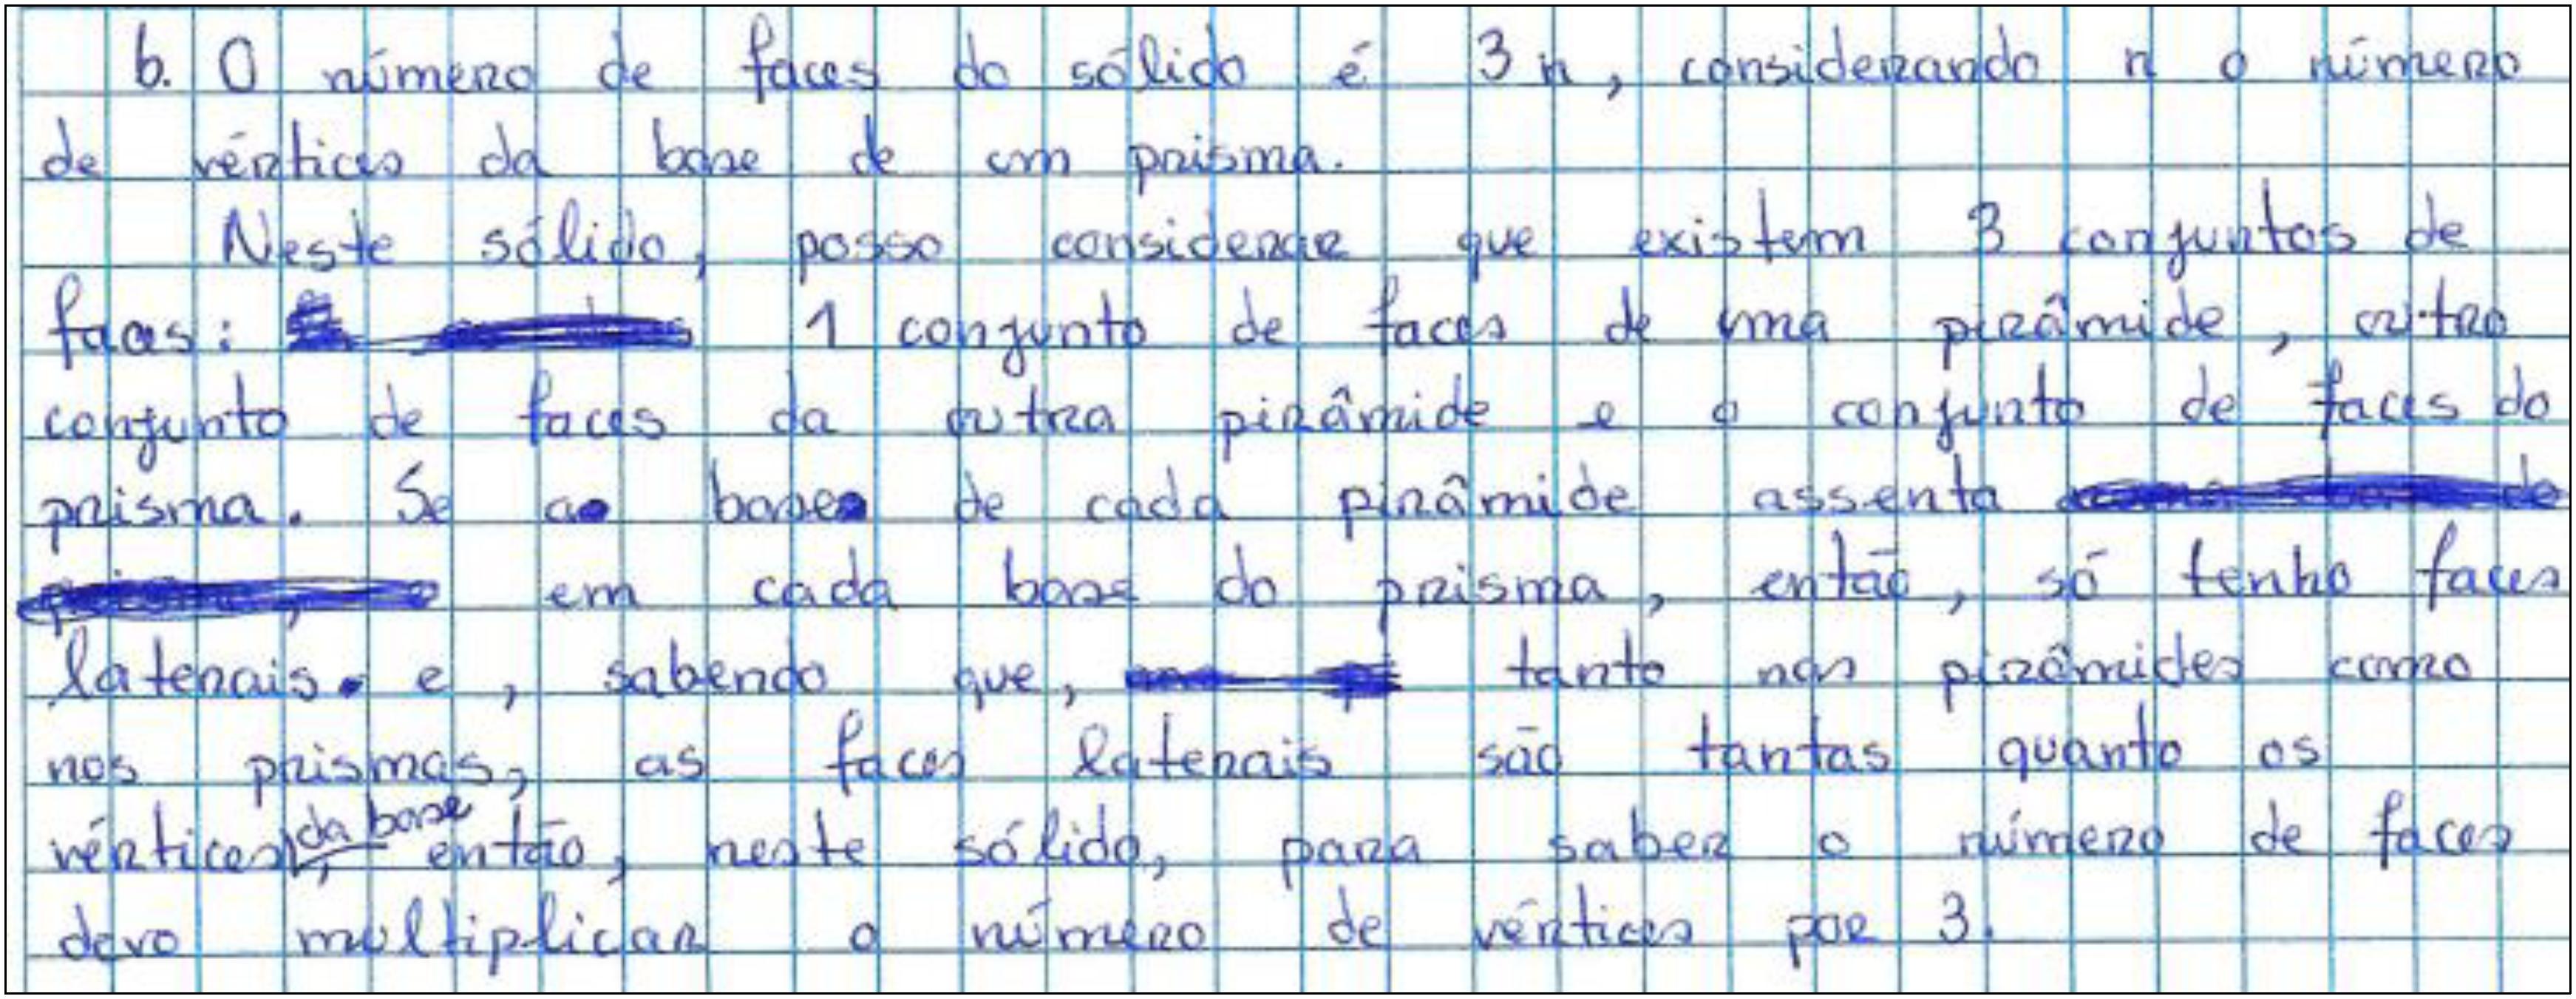 b. O número de faces do sólido é 3n, considerando n o número
de vértices da base de um prisma.
Neste sólido, posso considerar que existem 3 conjuntos de
faces: 1 conjunto de faces de uma pirâmide, outro
conjunto de faces da outra pirâmide e o conjunto de faces do
prisma. Se a base de cada pirâmide assenta
em cada base do prisma, então, só tenho faces
laterais. e, sabendo que, tanto nas pirâmides como
nos prismas, as faces laterais são tantas quanto os
vértices da base, então, neste sólido, para saber o número de faces
devo multiplicar o número de vértices por 3.